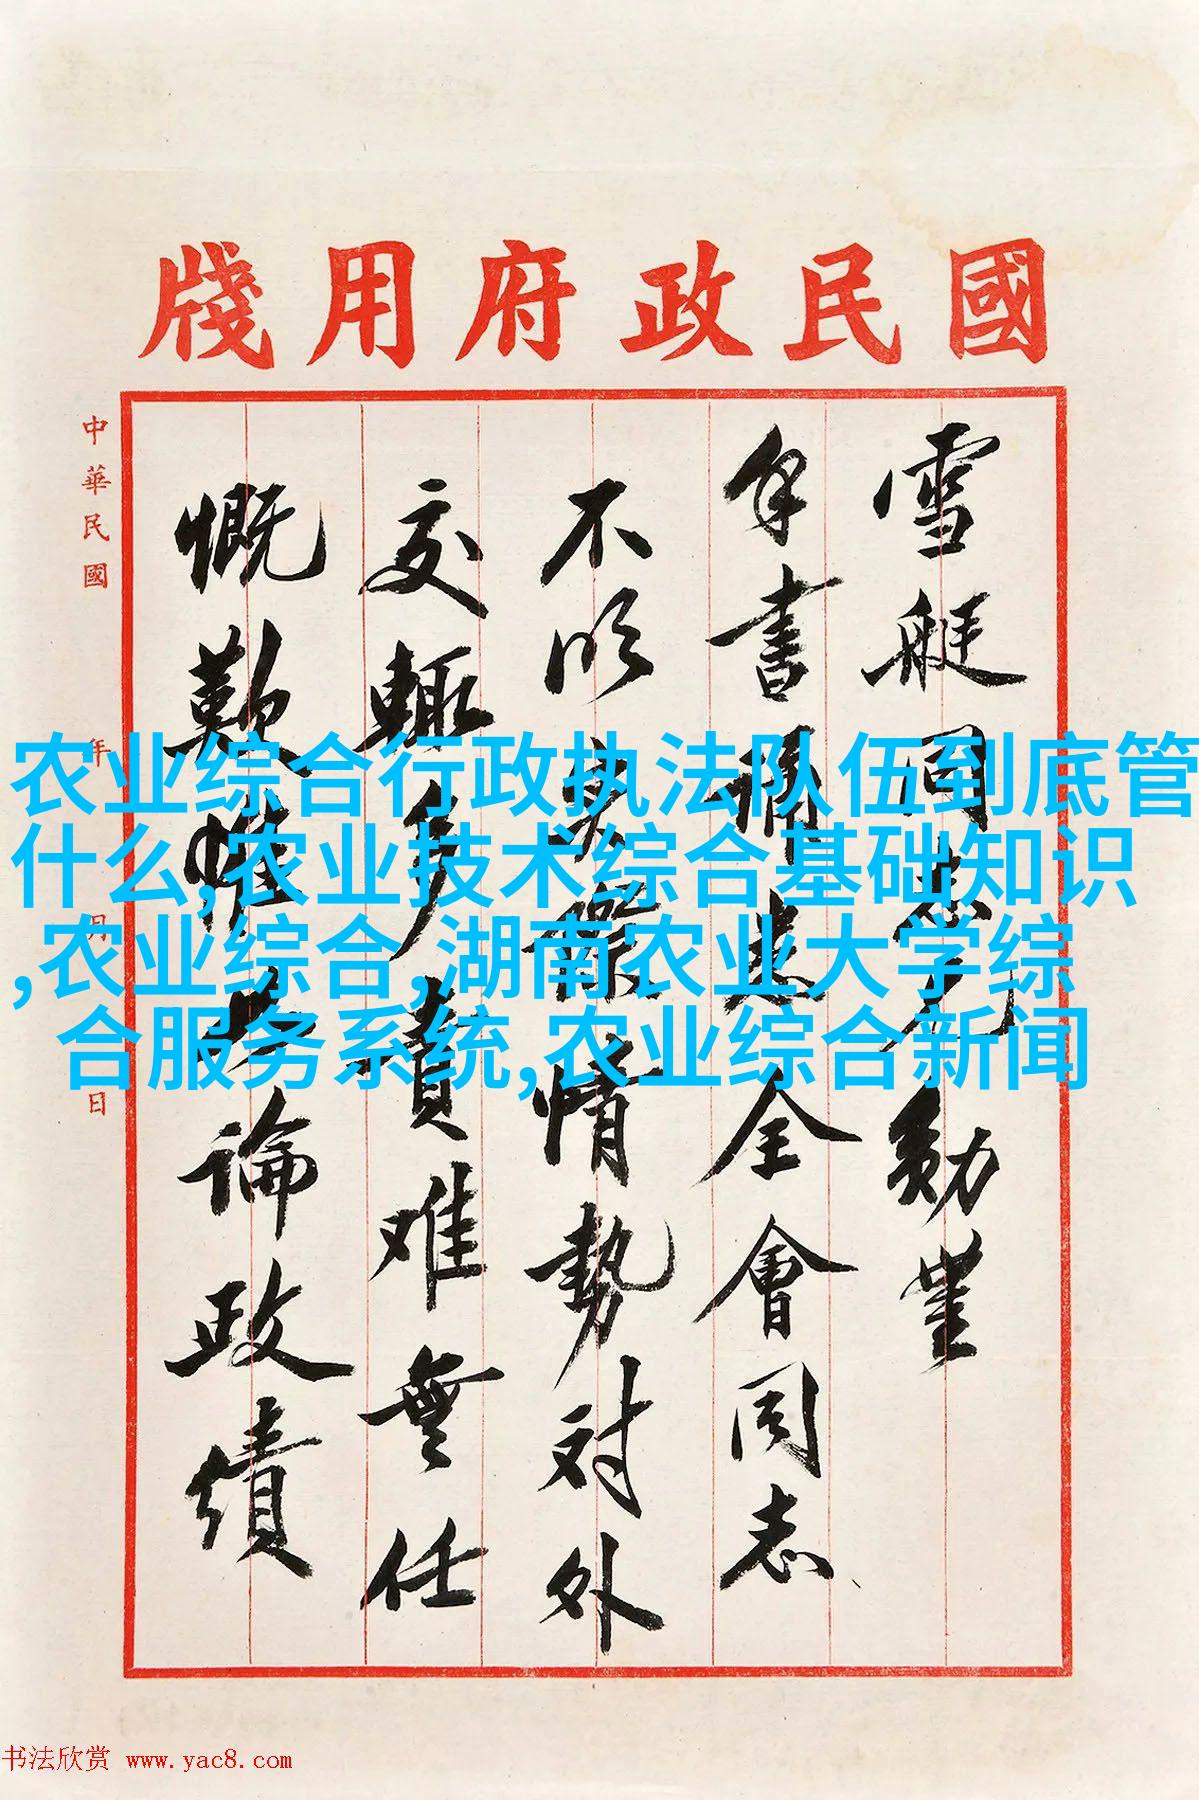 國民政府用牋
雪艇同志兄勛鑒
手書誦悉全會同志
不明真象情勢对外
交輒多責难無任
慨歎惟以論政績
中華民國 年 月 日
农业综合行政执法队伍到底管
什么,农业技术综合基础知识
,农业综合,湖南农业大学综
合服务系统,农业综合新闻
书法欣赏 www.yac8.com